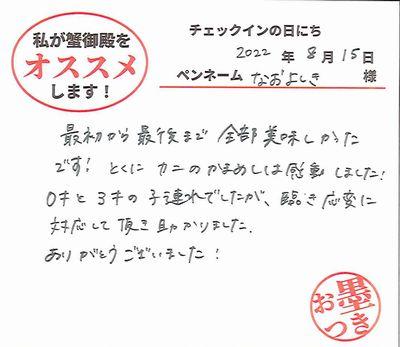 私が蟹御殿を
オススメ
します！
チェックインの日にち
2022 年 8 月 15 日
ペンネーム なおよしき 様
最初から最後まで 全部美味しかった
です! とくに カニのかまめしは感動しました!
0才と 3才の子連れでしたが、臨き応変に
対応して頂き助かりました.
ありがとうございました!
お墨
つき